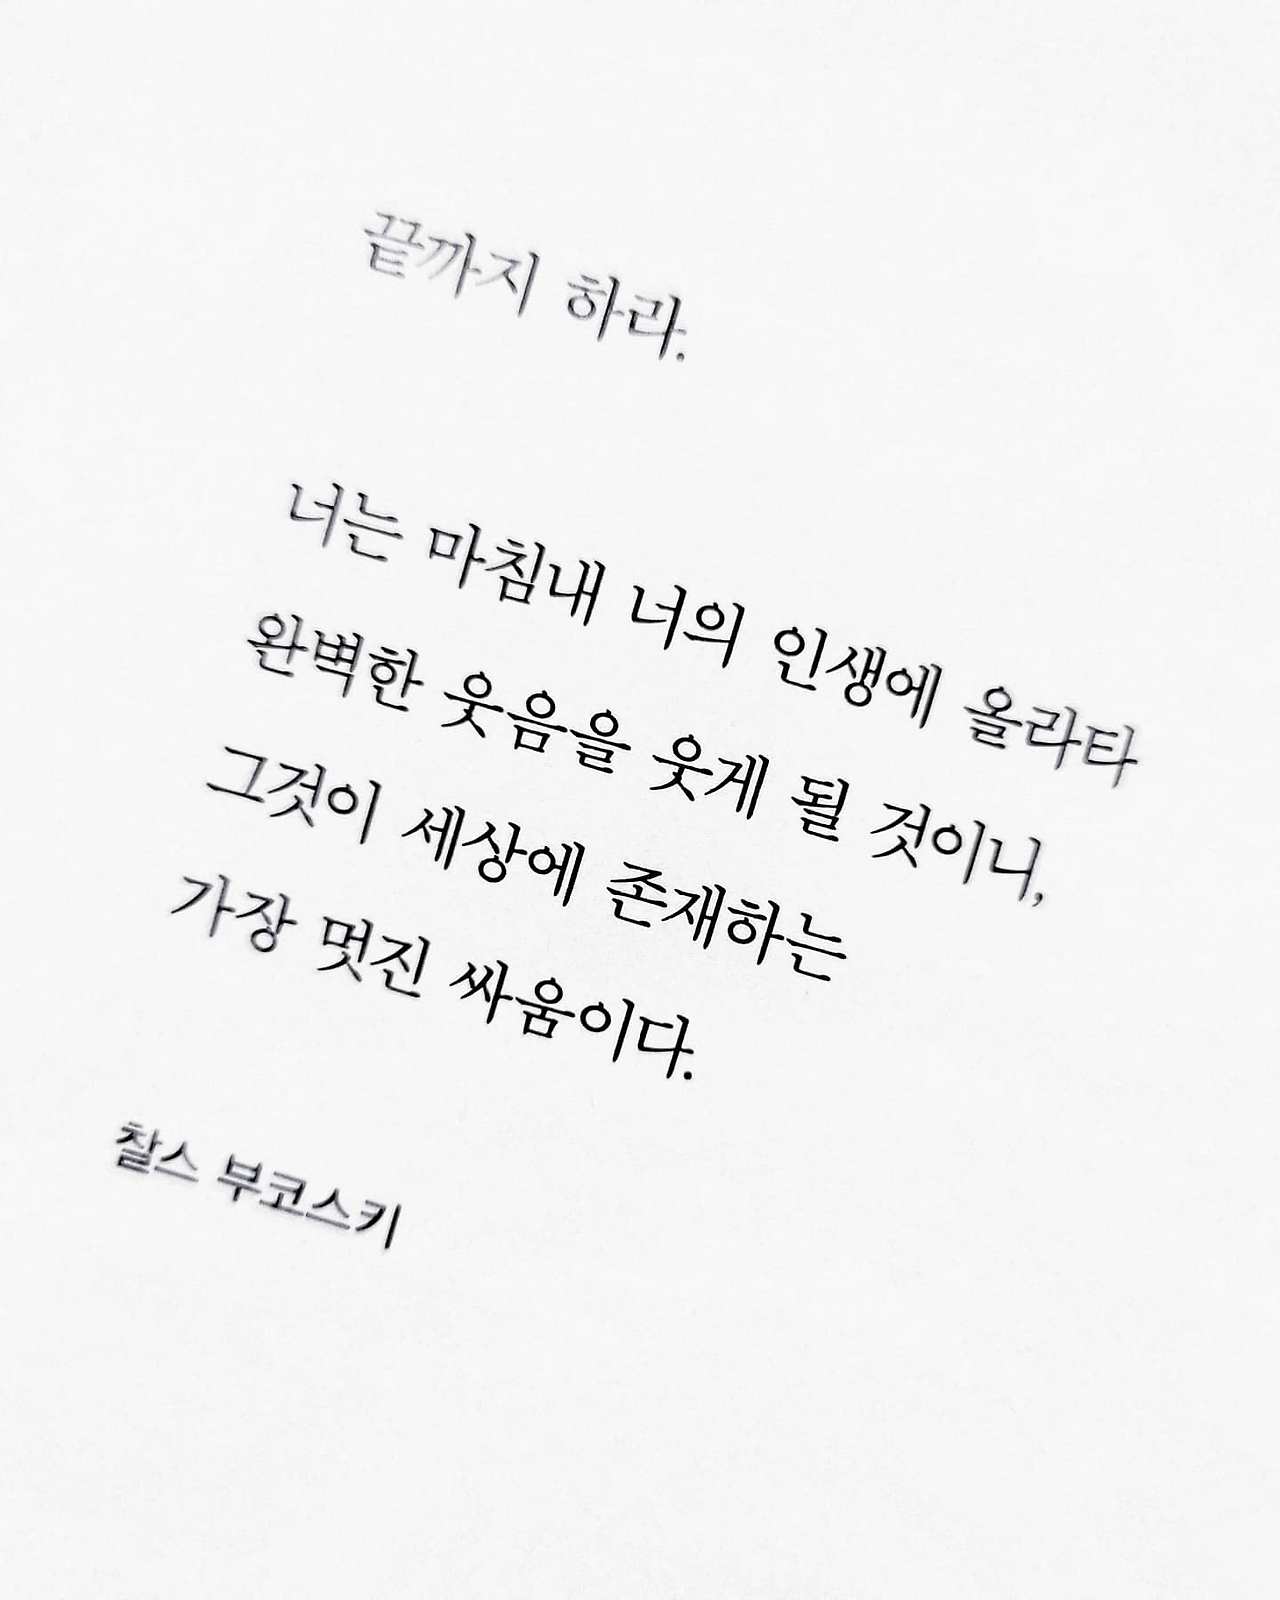 끝까지 하라.
너는 마침내 너의 인생에 올라타
완벽한 웃음을 웃게 될 것이니,
그것이 세상에 존재하는
가장 멋진 싸움이다.
찰스 부코스키